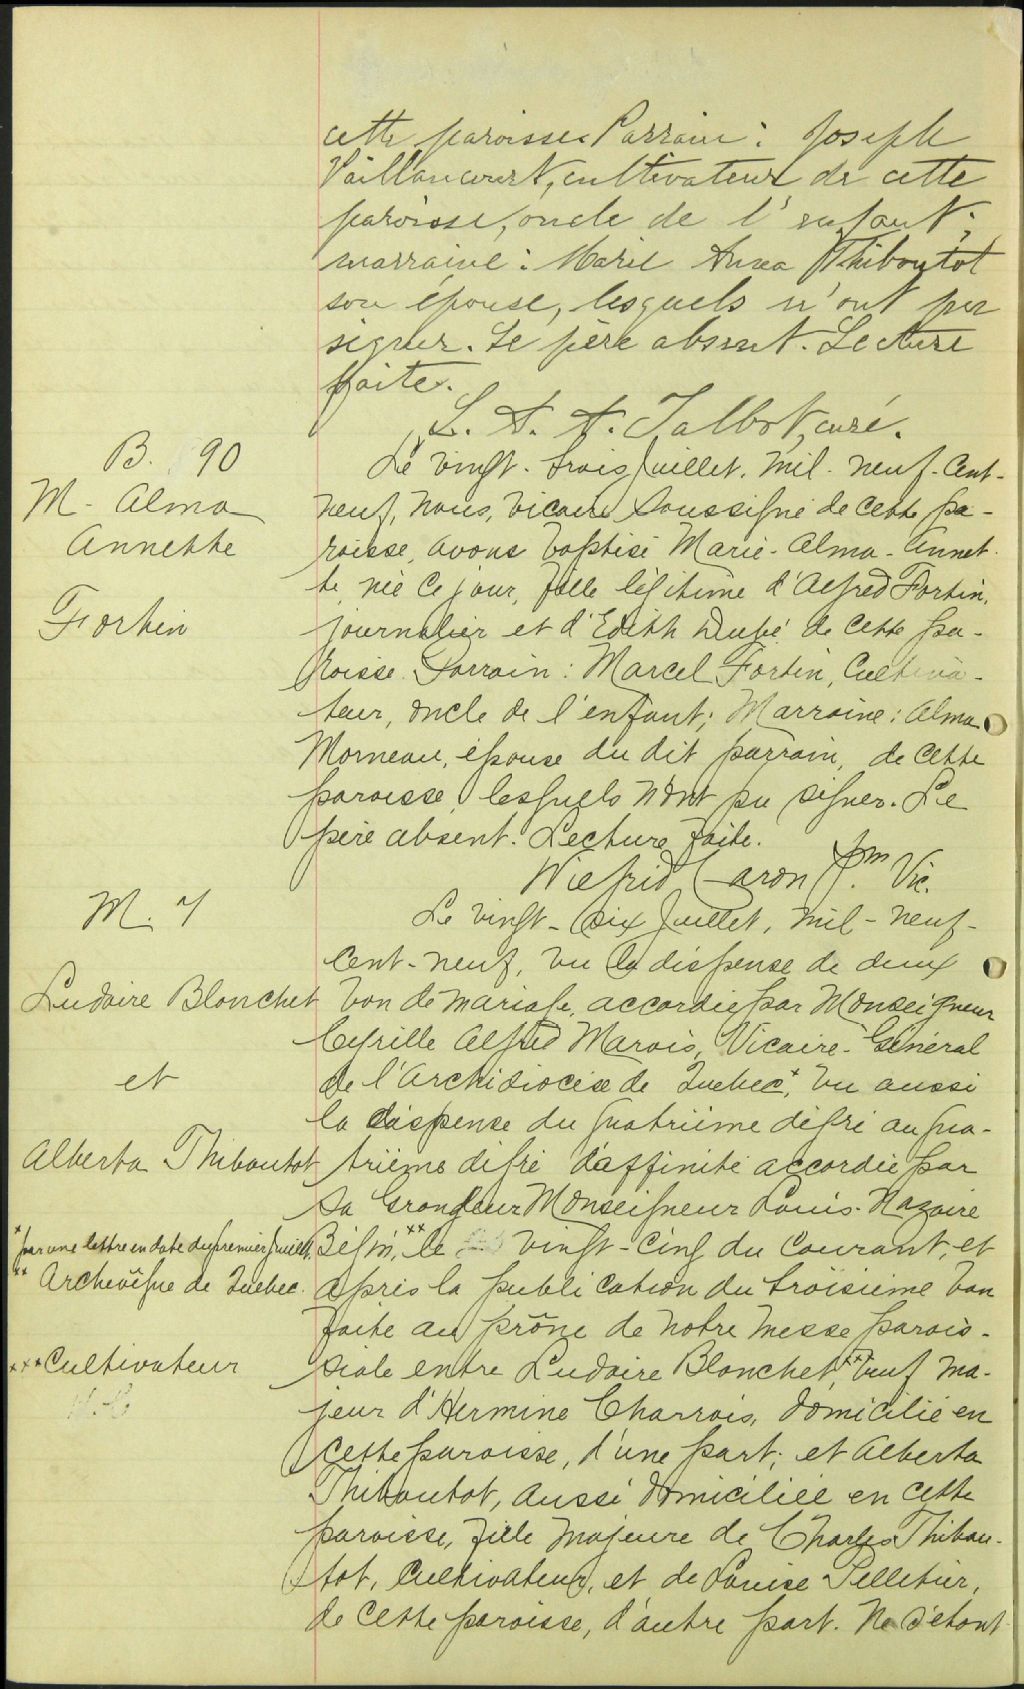 cette paroisse. Parrain : Joseph
Vaillancourt, cultivateur de cette
paroisse, oncle de l'enfant;
marraine : Marie Anna Thiboutot
son épouse, lesquels n'ont pu
signer. Le père absent. Lecture
faite.
L. A. A. Talbot, curé.
B. 90
M- Alma
Annette
Fortin
Le vingt-trois Juillet, mil-neuf-Cent-
neuf, nous, vicaire soussigné de cette pa-
roisse, avons baptisé Marie-Alma-Annet-
te, née ce jour, fille légitime d'Alfred Fortin,
journalier et d'Edith Dubé de cette pa-
roisse. Parrain : Marcel Fortin, Cultiva-
teur, oncle de l'enfant; Marraine : Alma
Morneau, épouse du dit parrain, de cette
paroisse, lesquels n'ont pu signer. Le
père absent. Lecture faite.
Wilfrid Caron Ptre Vic.
M. 7
Ludoire Blanchet
et
Alberta Thiboutot
* par une lettre en date du premier Juillet.
** Archevêque de Québec.
*** Cultivateur
Le vingt-six Juillet, mil-neuf-
Cent-neuf, vu la dispense de deux
ban de mariage, accordée par Monseigneur
Cyrille Alfred Marois, Vicaire-Général
de l'Archidiocèse de Québec*, vu aussi
la dispense du quatrième degré au qua-
trième degré d'affinité accordée par
Sa Grandeur Monseigneur Louis-Nazaire
Bégin,** le vingt-cinq du courant, et
après la publication du troisième ban
faite au prône de notre messe parois-
siale entre Ludoire Blanchet,*** veuf ma-
jeur d'Hermine Charrois, domicilié en
cette paroisse, d'une part; et Alberta
Thiboutot, aussi domiciliée en cette
paroisse, fille majeure de Charles Thibou-
tot, Cultivateur, et de Louise Pelletier,
de cette paroisse, d'autre part. Ne s'étant